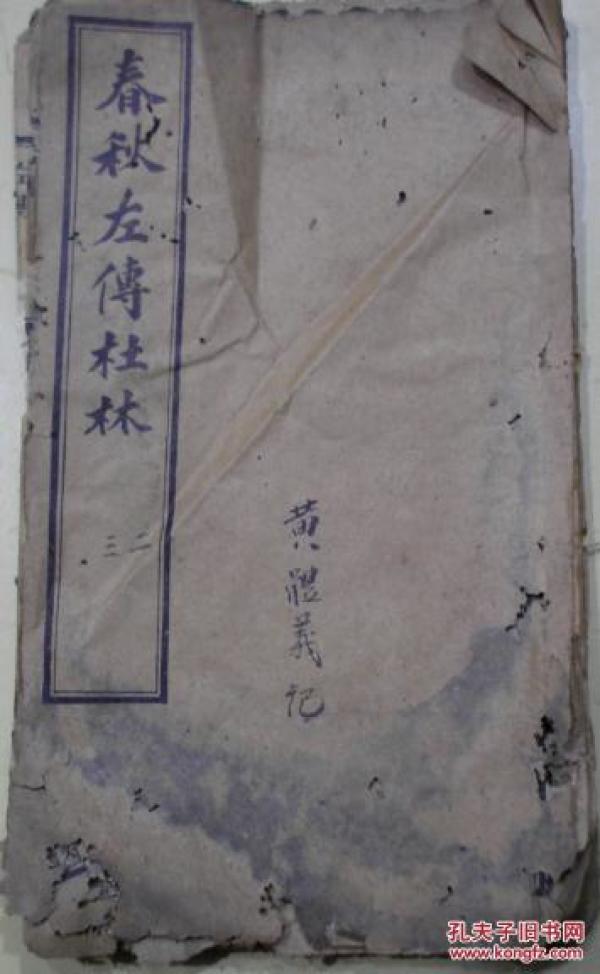 春秋左傳杜林
二三
黄體義记
孔夫子旧书网
www.kongfz.com